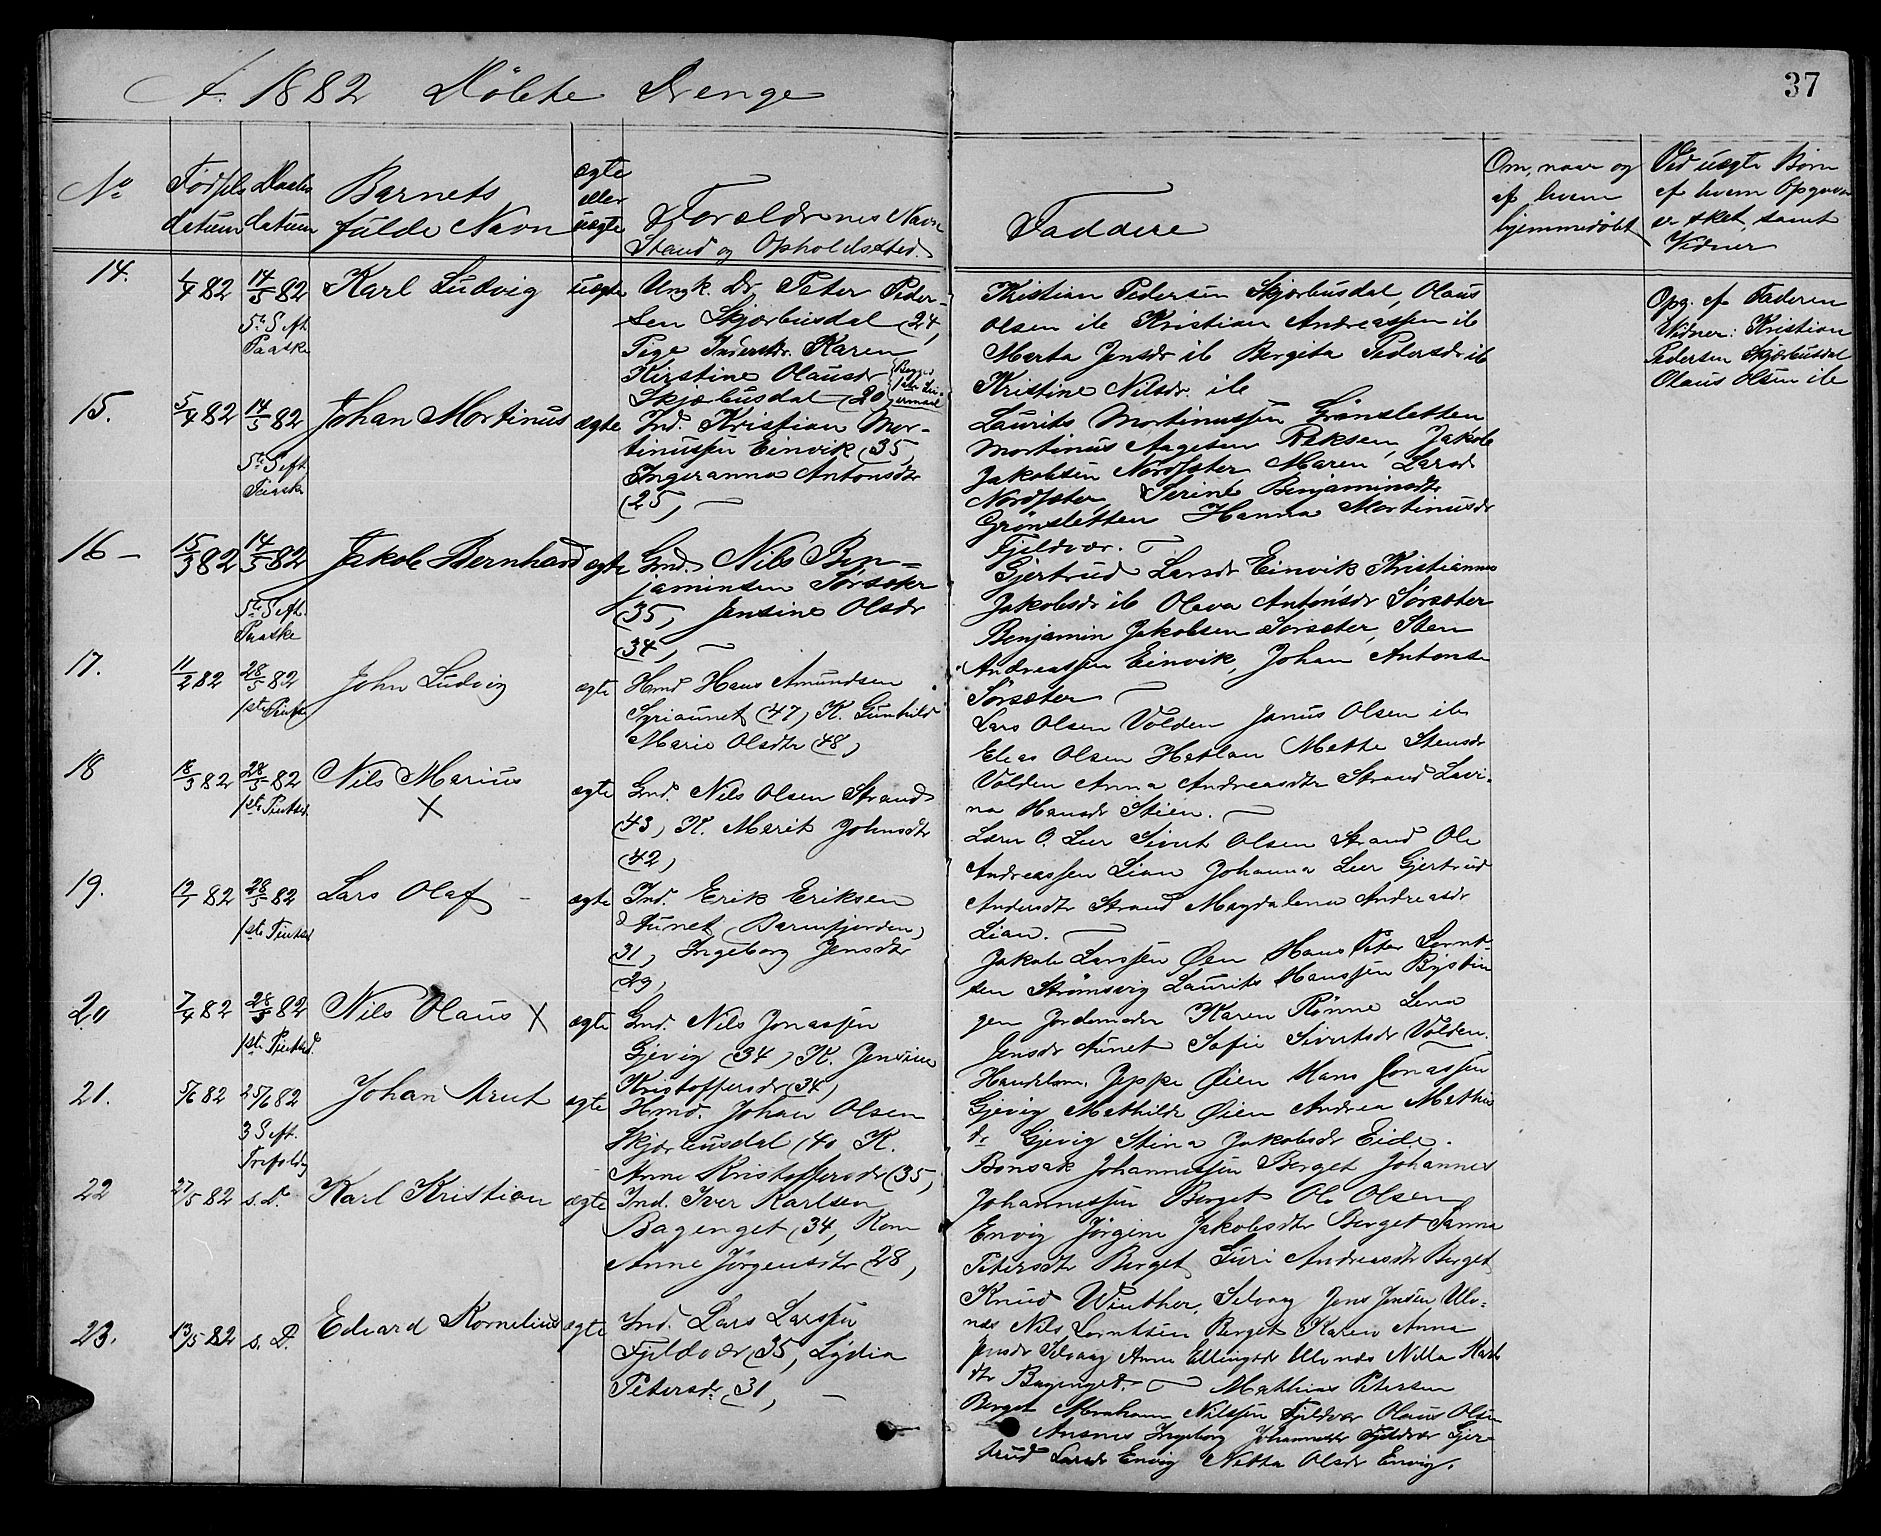 A. 1882 Döbte Drenge
37
No
Fødsels datum
Daabs datum
Barnets fulde Navn
ægte eller uægte
Forældrenes Navn
Stand og Opholdssted.
Faddere
Om, naar og af hvem hjemmedøbt
Ved uægte Børn
af hvem Opgaven
er sket, samt
Vidner
14.
1/4 82
14/5 82
5te S. eft. Paaske
Karl Ludvig
uægte
Ungk. Dr. Peter Peder-
sen Skjærbusdal (24,
Pige Inderstdr. Karen
Kirstine Olausdr
Skjærbusdal (20,
Kristian Pedersen Skjærbusdal, Olaus
Olsen ib Kristian Andreassen ib
Marta Jensdr ib Bergita Pedersdr ib
Kristine Nilsdr. ib
Opg. af Faderen
Vidner: Kristian
Pedersen Skjærbusdal
Olaus Olsen ib
15.
5/4 82
14/5 82
5te S. eft. Paaske
Johan Mortinus
ægte
Ind. Kristian Mor-
tinussen Einvik (35,
Ingeranna Antonsdtr
(25,
Laurits Mortinussen Grønsletten
Mortinus Aagesen Jakob
Jakobsen Nordsæter Maren Larsdr
Nordsæter, Serine Benjaminsdtr
Grønsletten Hanna Mortinusdr
Fjeldvær.
16
15/3 82
14/5 82
5te S. eft. Paaske
Jakob Bernhard
ægte
Grd. Nils Ben-
jaminsen Sørsæter
(35, Jensine Olsdr
(34,
Gjertrud Larsdr Einvik Kristianna
Jakobsdr ib Oleva Antonsdr Sørsæter
Benjamin Jakobsen Sørsæter, Sten
Andreassen Einvik, Johan Antons.
Sørsæter
17.
11/2 82
28/5 82
1ste Pintsed
John Ludvig
ægte
Hmd Hans Amundsen
Syriaunet (47, K. Gunhild
Marie Olsdtr (48,
Lars Olsen Volden Janus Olsen ib
Elias Olsen Hatlan Mette Stensdr
Volden Anna Andreasdtr Strand Lovi-
na Hansdr Stien.
18
18/3 82
28/5 82
1ste Pintsed.
Nils Marius
X
ægte
Grd. Nils Olsen Strand
(43, K. Marit Johnsdtr
(42,
Lærer O. Leer Sivert Olsen Strand Ole
Andreassen Lian Johanna Leer Gjertrud
Andersdtr Strand Magdalena Andreasdr
Lian.
19.
28/5 82
1ste Pintsed
Lars Olaf
ægte
Ind. Erik Eriksen
Aunet (Barmfjorden,
31, Ingeborg Jensdtr
(29,
Jakob Larssen Øen Hans Peter Lornt-
sen Strømsvig Laurits Hanssen
Jordemoder Karen Rønne Lena
Jensdr Aunet Sofie Sivertsdr Volden.
20
7/4 82
28/5 82
1ste Pintsed.
Nils Olaus X
ægte
Grd. Nils Jonassen
Gjevig (34, K. Jensine
Kristoffersdr (34,
Handelsm. Jeppe Øien Hans Jonassen
Gjevig Mathilde Øien Andrea Mathias
dr Gjevig Stina Jakobsdr Eide.
21.
5/6 82
25/6 82
3 S. eft. Trefoldg
Johan Arnt
ægte
Hmd. Johan Olsen
Skjærbusdal (40 K.
Anne Kristoffersdr (35,
Bonsak Johannessen Berget Johannes
Johannessen Berget Ole Olsen
Envig Jørgine Jakobsdtr Berget Sanna
Petersdtr Berget, Guri Andreasdtr Berget
22
27/5 82
s. D.
Karl Kristian
ægte
Ind. Iver Karlsen
Bagenget (34, Kone
Anne Jørgensdtr (28,
Knud Winther, Selvaag Jens Jensen Ulv-
næs Nils Lorntsen Berget Karen Anna
Jensdr Selvaag Anne Ellingsdr Ulvnæs Nilla
dtr Bagenget.
23.
13/5 82
s. D.
Edvard Kornelius
ægte
Ind. Lars Larssen
Fjeldvær (35, Lydia
Petersdr. (31,
Mathias Petersen
Berget Abraham Nilssen Fjeldvær Olaus Olsen
Ansnes Ingeborg Johannesdtr Fjeldvær Gjer-
trud Larsdr Envig Netta Olsdr Envig.